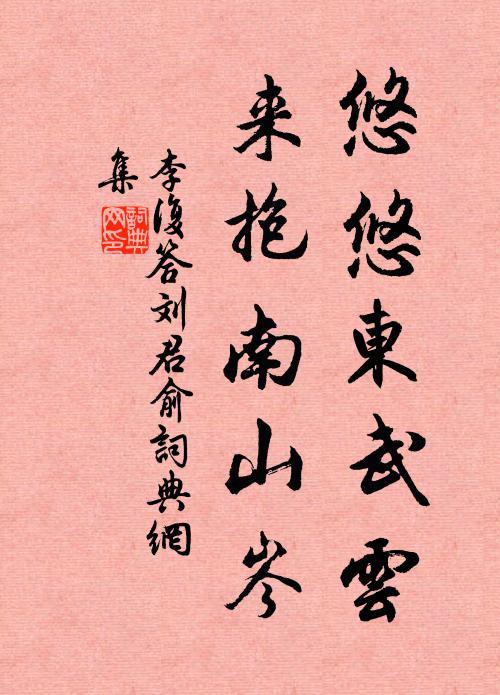 悠悠東武雲
来抱南山岑
李復答刘君俞詞典網
集
詞典
网印